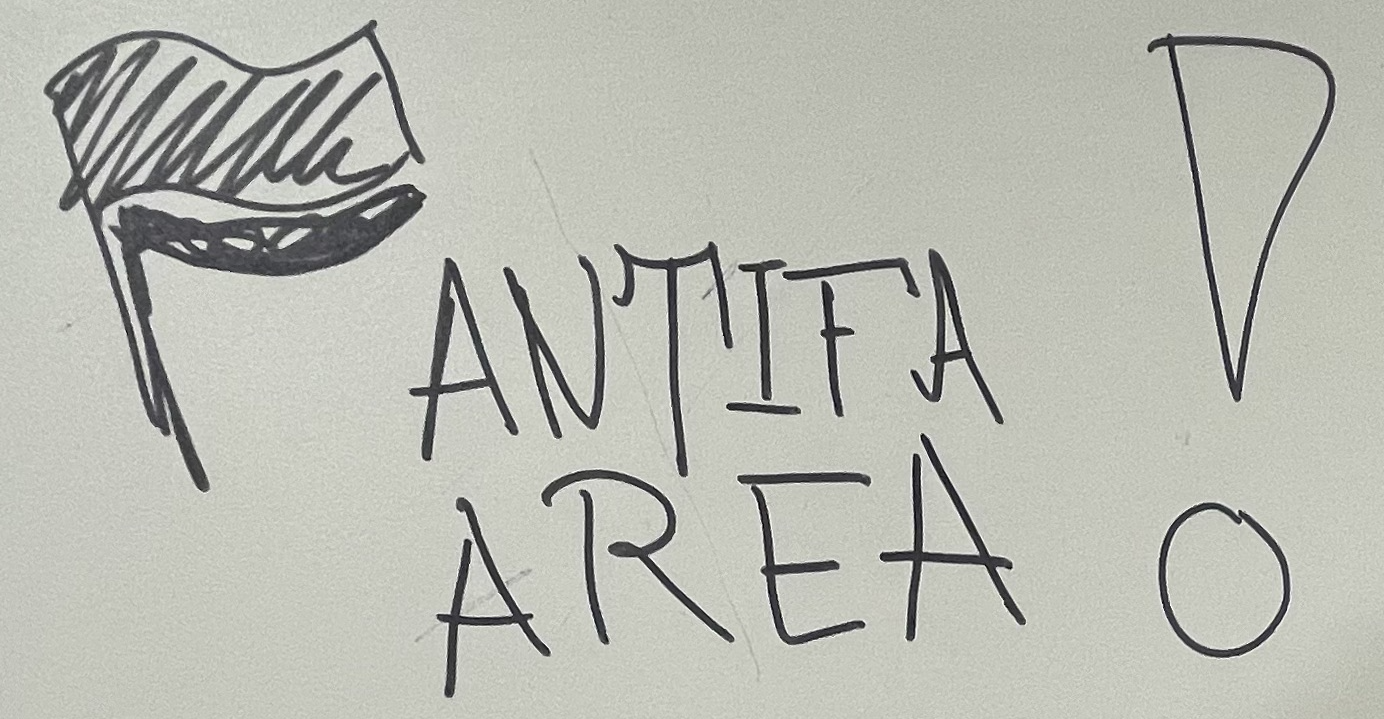 ANTIFA
AREA!